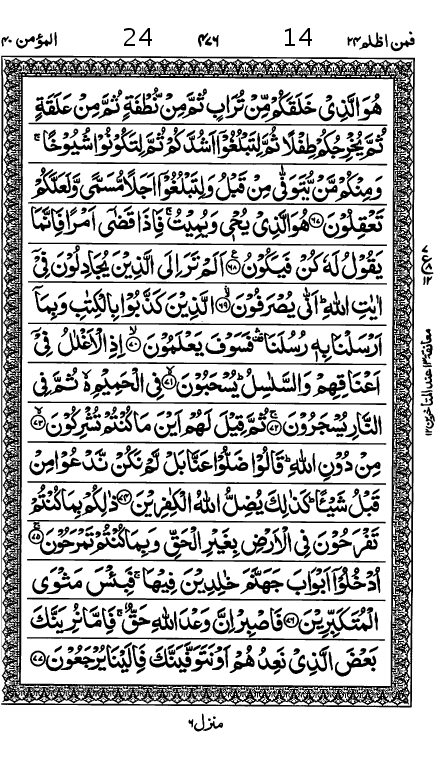 فمن اظلم ٢٤ 14 ٤٧٦ 24 المؤمن ٤٠
هُوَ الَّذِىْ خَلَقَكُمْ مِّنْ تُرَابٍ ثُمَّ مِنْ نُّطْفَةٍ ثُمَّ مِنْ عَلَقَةٍ
ثُمَّ يُخْرِجُكُمْ طِفْلًا ثُمَّ لِتَبْلُغُوْۤا اَشُدَّكُمْ ثُمَّ لِتَكُوْنُوْا شُيُوْخًا ۚ
وَمِنْكُمْ مَّنْ يُّتَوَفّٰى مِنْ قَبْلُ وَلِتَبْلُغُوْۤا اَجَلًا مُّسَمًّى وَّلَعَلَّكُمْ
تَعْقِلُوْنَ ﴿٦٧﴾ هُوَ الَّذِىْ يُحْىٖ وَيُمِيْتُ ۚ فَاِذَا قَضٰٓى اَمْرًا فَاِنَّمَا
يَقُوْلُ لَهٗ كُنْ فَيَكُوْنُ ﴿٦٨﴾ اَلَمْ تَرَ اِلَى الَّذِيْنَ يُجَادِلُوْنَ فِىْۤ
اٰيٰتِ اللّٰهِ ؕ اَنّٰى يُصْرَفُوْنَ ﴿٦٩﴾ الَّذِيْنَ كَذَّبُوْا بِالْكِتٰبِ وَبِمَاۤ
اَرْسَلْنَا بِهٖ رُسُلَنَا ۛ فَسَوْفَ يَعْلَمُوْنَ ﴿٧٠﴾ اِذِ الْاَغْلٰلُ فِىْۤ
اَعْنَاقِهِمْ وَالسَّلٰسِلُ ؕ يُسْحَبُوْنَ ﴿٧١﴾ فِى الْحَمِيْمِ ۙ ثُمَّ فِى
النَّارِ يُسْجَرُوْنَ ﴿٧٢﴾ ثُمَّ قِيْلَ لَهُمْ اَيْنَ مَا كُنْتُمْ تُشْرِكُوْنَ ﴿٧٣﴾
مِنْ دُوْنِ اللّٰهِ ؕ قَالُوْا ضَلُّوْا عَنَّا بَلْ لَّمْ نَكُنْ نَّدْعُوْا مِنْ
قَبْلُ شَيْـًٔا ؕ كَذٰلِكَ يُضِلُّ اللّٰهُ الْكٰفِرِيْنَ ﴿٧٤﴾ ذٰلِكُمْ بِمَا كُنْتُمْ
تَفْرَحُوْنَ فِى الْاَرْضِ بِغَيْرِ الْحَقِّ وَبِمَا كُنْتُمْ تَمْرَحُوْنَ ﴿٧٥﴾
اُدْخُلُوْۤا اَبْوَابَ جَهَنَّمَ خٰلِدِيْنَ فِيْهَا ۚ فَبِئْسَ مَثْوَى
الْمُتَكَبِّرِيْنَ ﴿٧٦﴾ فَاصْبِرْ اِنَّ وَعْدَ اللّٰهِ حَقٌّ ۚ فَاِمَّا نُرِيَنَّكَ
بَعْضَ الَّذِىْ نَعِدُهُمْ اَوْ نَتَوَفَّيَنَّكَ فَاِلَيْنَا يُرْجَعُوْنَ ﴿٧٧﴾
معانقة ١٣ عند المتاخرين ١٢
منزل ٦